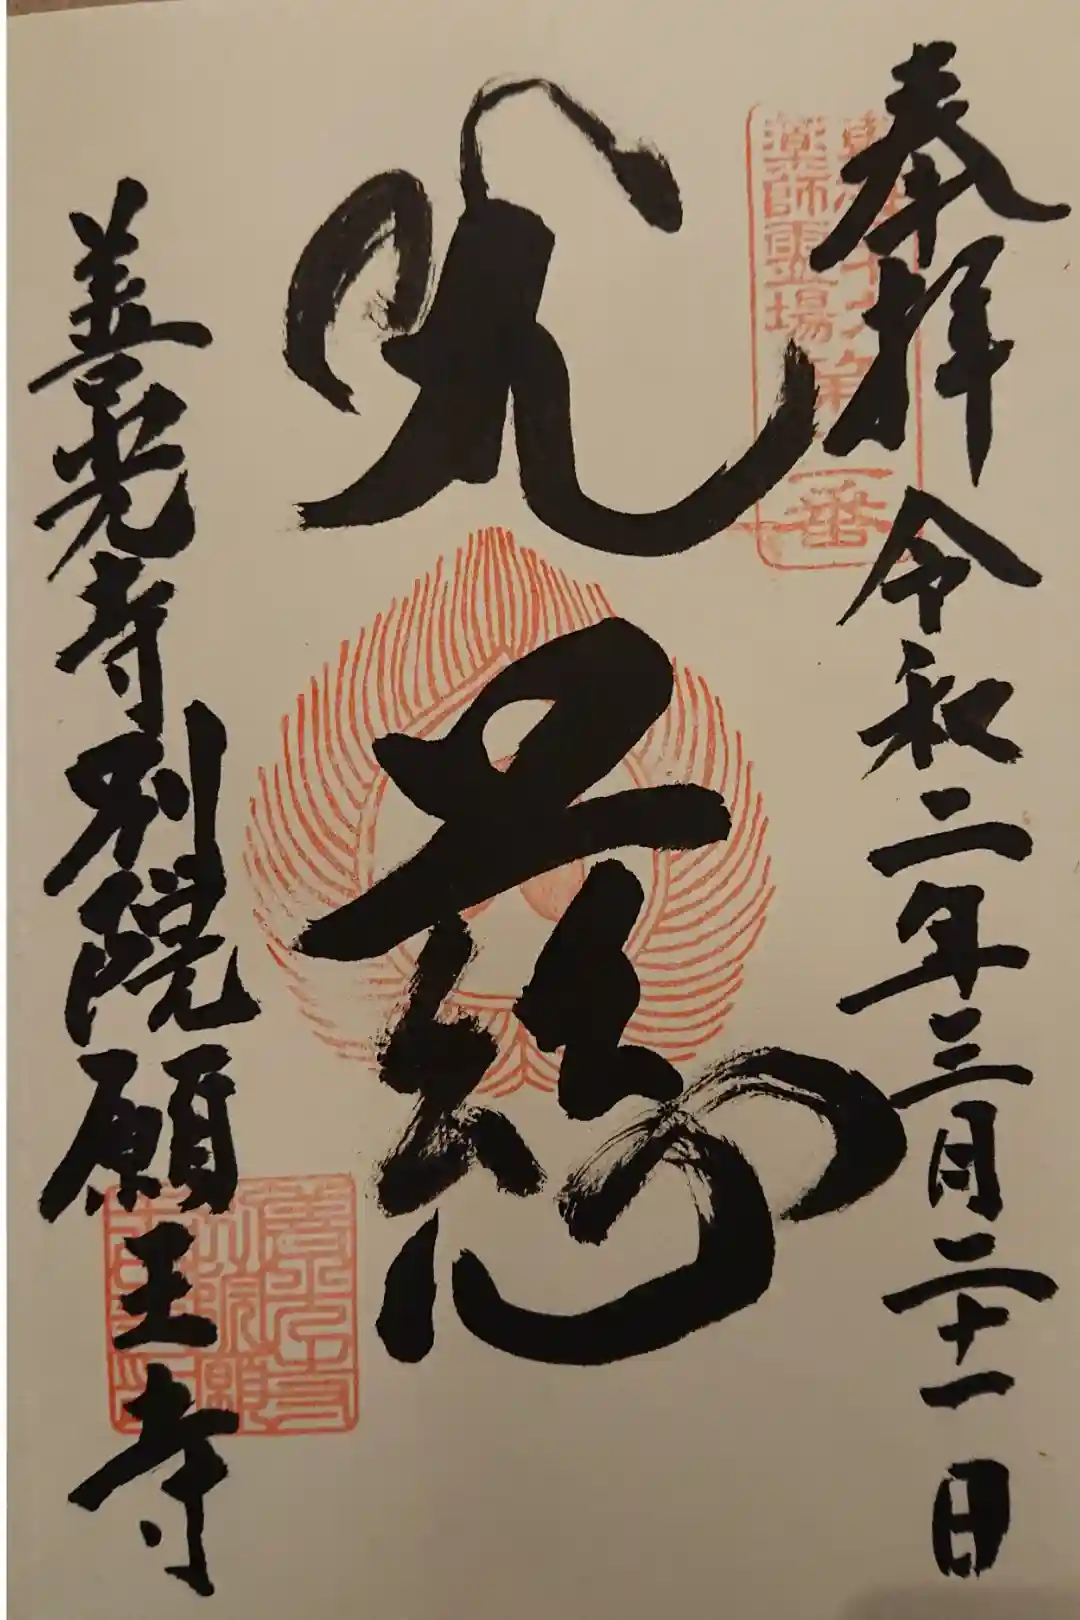 奉拝 令和二年三月二十一日
薬師霊場
第二番
慈光
善光寺別院願王寺